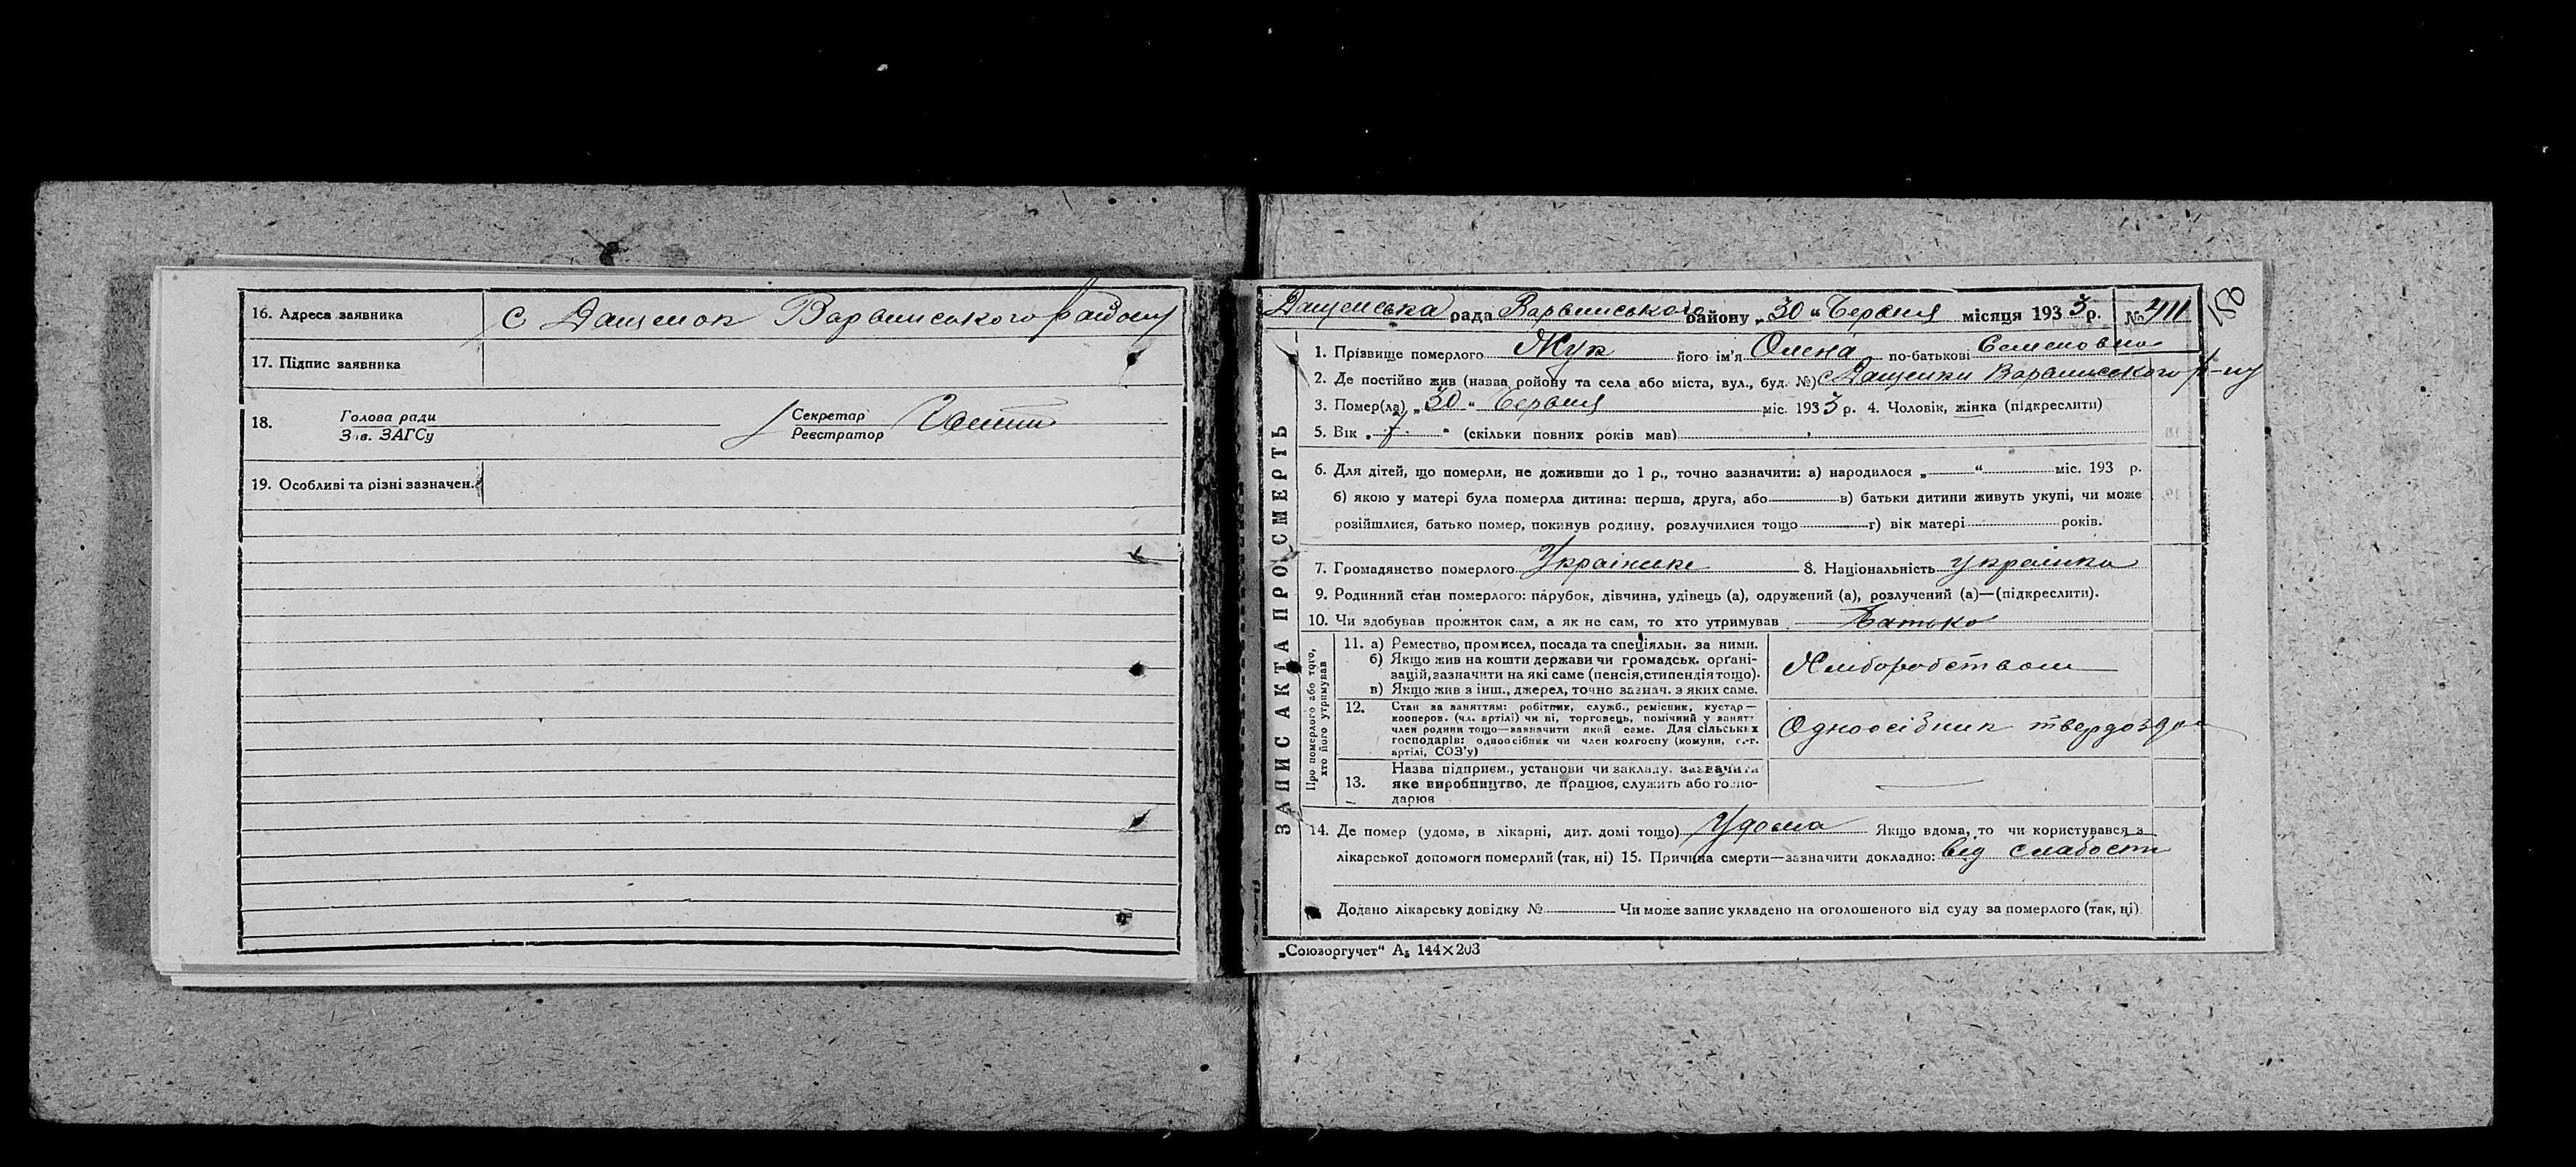 16. Адреса заявника с Дащенок Варвинського району
17. Підпис заявника
18. Голова ради Секретар
Зав. ЗАГСу Реєстратор
19. Особливі та різні зазначен.
Дащенська рада Варвинського району „30“ Червня місяця 1933 р. № 411
158
1. Прізвище померлого Жук його ім'я Олена по-батькові Семеновна
2. Де постійно жив (назва ройону та села або міста, вул., буд. №) с Дащенки Варвинського р-ну
3. Помер(ла) „30“ Червня міс. 1933 р. 4. Чоловік, жінка (підкреслити)
5. Вік „7“ (скільки повних років мав)
6. Для дітей, що померли, не доживши до 1 р., точно зазначити: а) народилося „ “ міс. 193 р.
б) якою у матері була померла дитина: перша, друга, або в) батьки дитини живуть укупі, чи може
розійшлися, батько помер, покинув родину, розлучилися тощо г) вік матері років.
7. Громадянство померлого 8. Національність українка
9. Родинний стан померлого: парубок, дівчина, удівець (а), одружений (а), розлучений (а)—(підкреслити).
10. Чи здобував прожиток сам, а як не сам, то хто утримував Батько
11. а) Ремество, промисел, посада та спеціяльн. за ними.
б) Якщо жив на кошти держави чи громадськ. органі-
зацій, зазначити на які саме (пенсія, стипендія тощо).
в) Якщо жив з інш., джерел, точно зазнач. з яких саме.
Хліборобством
12. Стан за заняттям: робітник, служб., ремісник, кустар—
кооперов. (чл. артілі) чи ні, торговець, помічний у занятт
член родини тощо—зазначити який саме. Для сільських
господарів: одноосібник чи член колгоспу (комуни, с.-г.
артілі, СОЗ'у)
Одноосібник твердозда
13. Назва підприєм., установи чи закладу. зазначити
яке виробництво, де працює, служить або госпо-
дарює
14. Де помер (удома, в лікарні, дит. домі тощо) Удома Якщо вдома, то чи користувався з
лікарської допомоги померлий (так, ні) 15. Причина смерти—зазначити докладно: від слабости
Додано лікарську довідку № Чи може запис укладено на оголошеного від суду за померлого (так, ні)
ЗАПИС АКТА ПРО СМЕРТЬ
Про померлого або того,
хто його утримував
„Союзоргучет“ А5 144×203